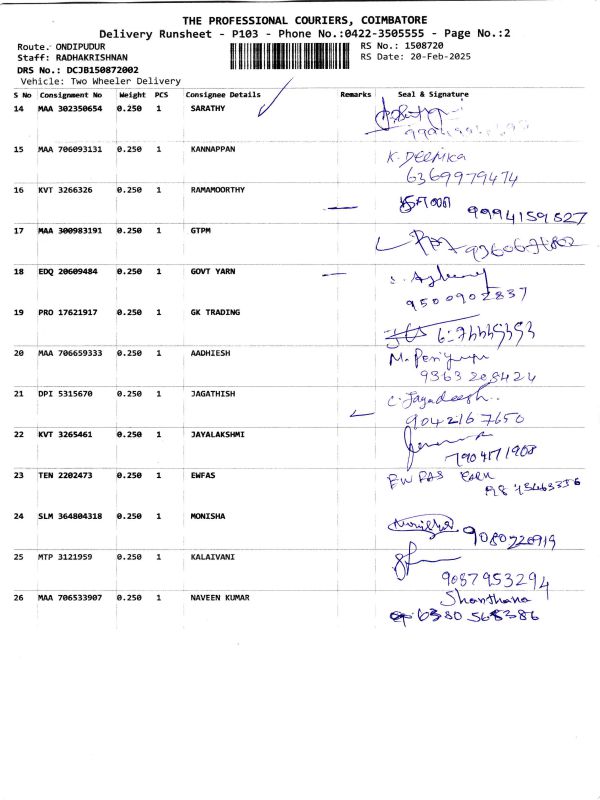 THE PROFESSIONAL COURIERS, COIMBATORE
Delivery Runsheet - P103 - Phone No.:0422-3505555 - Page No.:2
Route. ONDIPUDUR RS No.: 1508720
Staff: RADHAKRISHNAN RS Date: 20-Feb-2025
DRS No.: DCJB150872002
Vehicle: Two Wheeler Delivery
S No Consignment No Weight PCS Consignee Details Remarks Seal & Signature
14 MAA 302350654 0.250 1 SARATHY
15 MAA 706093131 0.250 1 KANNAPPAN K. DEEPIKA
6369979474
16 KVT 3266326 0.250 1 RAMAMOORTHY
9994159827
17 MAA 300983191 0.250 1 GTPM
18 EDQ 20609484 0.250 1 GOVT YARN
9500902837
19 PRO 17621917 0.250 1 GK TRADING
20 MAA 706659333 0.250 1 AADHIESH
9363208424
21 DPI 5315670 0.250 1 JAGATHISH C. Jagadeesh..
9042167650
22 KVT 3265461 0.250 1 JAYALAKSHMI
7904171908
23 TEN 2202473 0.250 1 EWFAS EWFAS
24 SLM 364804318 0.250 1 MONISHA
9080720919
25 MTP 3121959 0.250 1 KALAIVANI
9087953294
26 MAA 706533907 0.250 1 NAVEEN KUMAR Shanthana
6380568386